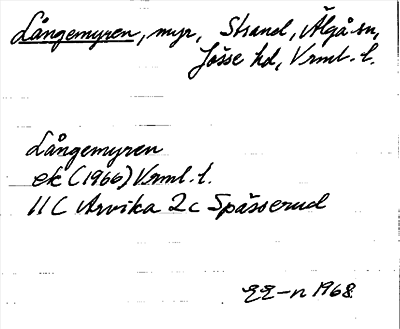 Långemyren, myr, Strand, Älgå sn,
Jösse hd, Vrml. l.
Långemyren
ek (1966) Vrml. l.
11 C Arvika 2 c Spässerud
1968